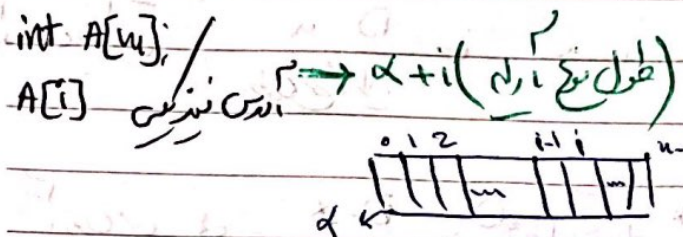 int A[n];
A[i] آدرس فیزیکی → α + i (طول نوع آرایه)
0 1 2 i-1 i n-
... ...
α